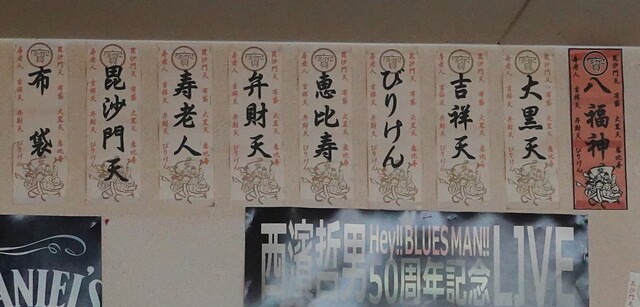 八福神
大黒天
吉祥天
びりけん
恵比寿
弁財天
寿老人
毘沙門天
布袋
西濱哲男
Hey!!BLUESMAN!!
50周年記念
LIVE
ANIEL'S